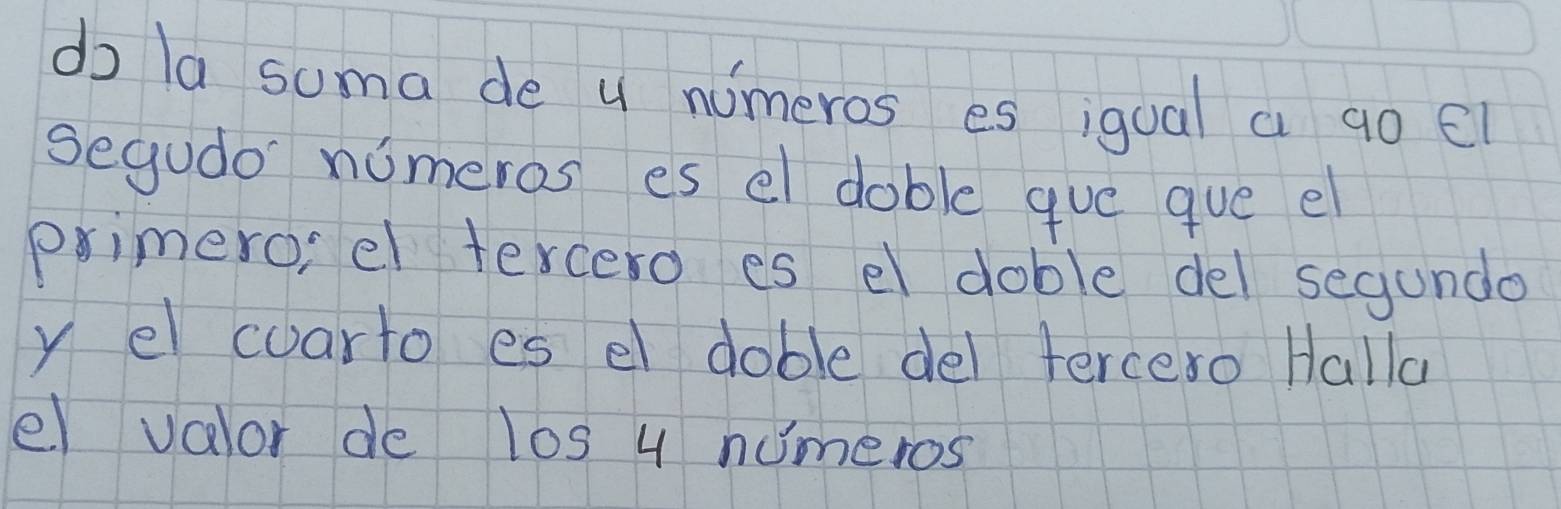 d) la suma de 4 números es igual a 90 El
segudo números es el doble que que el
primero; el tercero es el doble del segundo
y el cuarto es el doble del tercero Halla
el valor de los 4 números